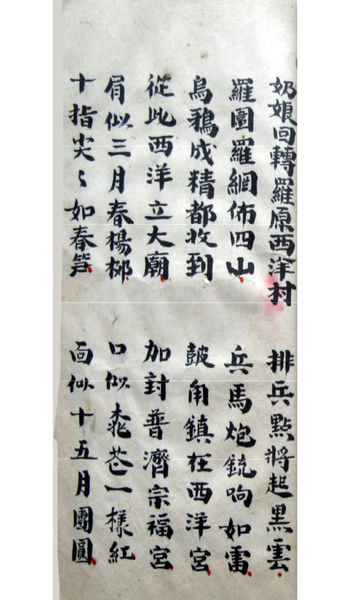 奶娘回轉羅原西洋村
排兵點將起黑雲
羅圍羅網佈四山
兵馬炮銃响如雷
烏鴉成精都收到
皷角鎮在西洋宮
從此西洋立大廟
加封普濟宗福宮
眉似三月春楊柳
口似桃花一樣紅
十指尖〻如春笋
面似十五月團圓